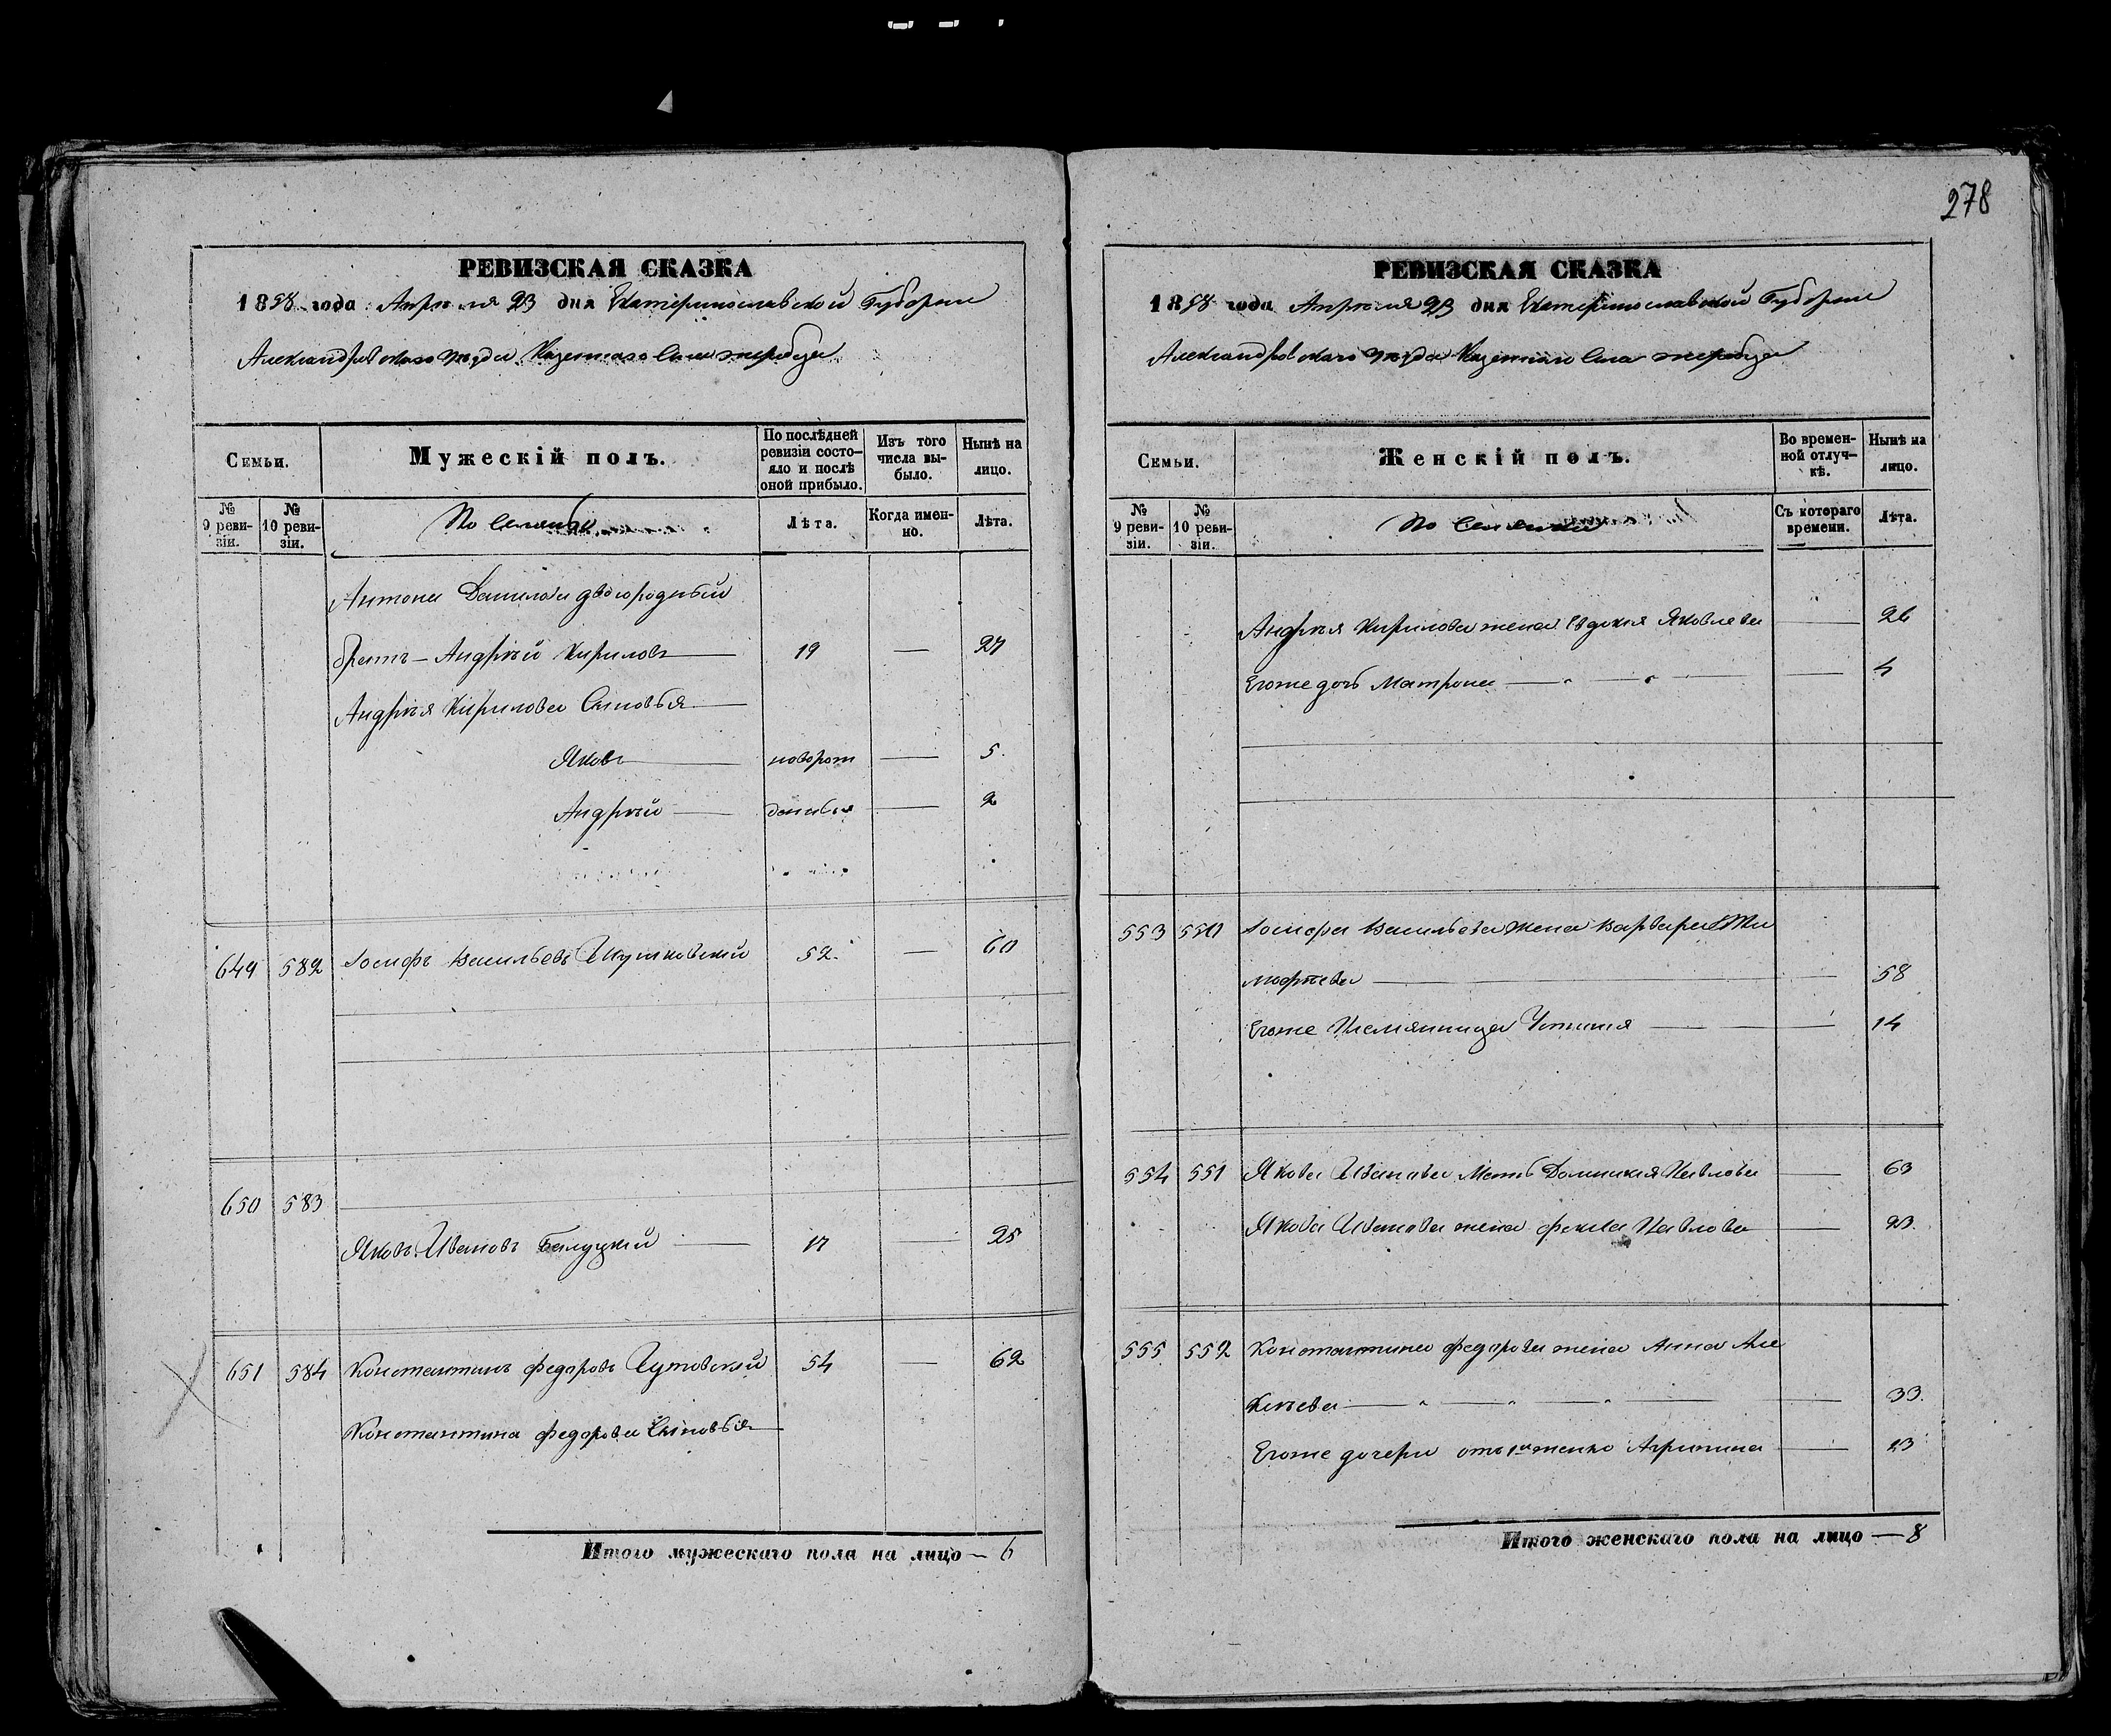 278
РЕВИЗСКАЯ СКАЗКА
1858 года Апреля 23 дня Екатеринославской Губернии
Александровскаго уезда Казеннаго Села Жеребца
Семьи.
Мужескій полъ.
По послѣдней ревизіи состояло и послѣ оной прибыло.
Изъ того числа выбыло.
Нынѣ на лицо.
№ 9 ревизіи.
№ 10 ревизіи.
Лѣта.
Когда именно.
Лѣта.
Антона Данилова двоюродный
братъ — Андрѣй Кириловъ 19 — 27
Андрѣя Кирилова Сыновья
Яковъ новорож 5
Андрѣй денныя 2
649 582 Іосифъ Васильевъ 52 — 60
650 583
Яковъ Ивановъ 17 — 25
651 584 Константинъ Федоровъ 54 — 62
Константина Федорова Сыновья
Итого мужескаго пола на лицо — 6
РЕВИЗСКАЯ СКАЗКА
1858 года Апреля 23 дня Екатеринославской Губернии
Александровскаго уезда Казеннаго Села Жеребца
Семьи.
Женскій полъ.
Во временной отлучкѣ.
Нынѣ на лицо.
№ 9 ревизіи.
№ 10 ревизіи.
Съ котораго времени.
Лѣта.
Андрѣя Кирилова жена Евдокия Яковлева — 26
Егоже дочь Матрона — 4
553 550 Іосифа Васильева жена Варвара Ти
мофѣева — 58
Егоже Племянница Устинія — 14
554 551 Якова Иванова Мать Домникия Павлова — 63
Якова Иванова жена Фекла Павлова — 23
555 552 Константина Федорова жена Анна Але
ксѣева — 33
Егоже дочери отъ 1й женки Агрипина — 13
Итого женскаго пола на лицо — 8